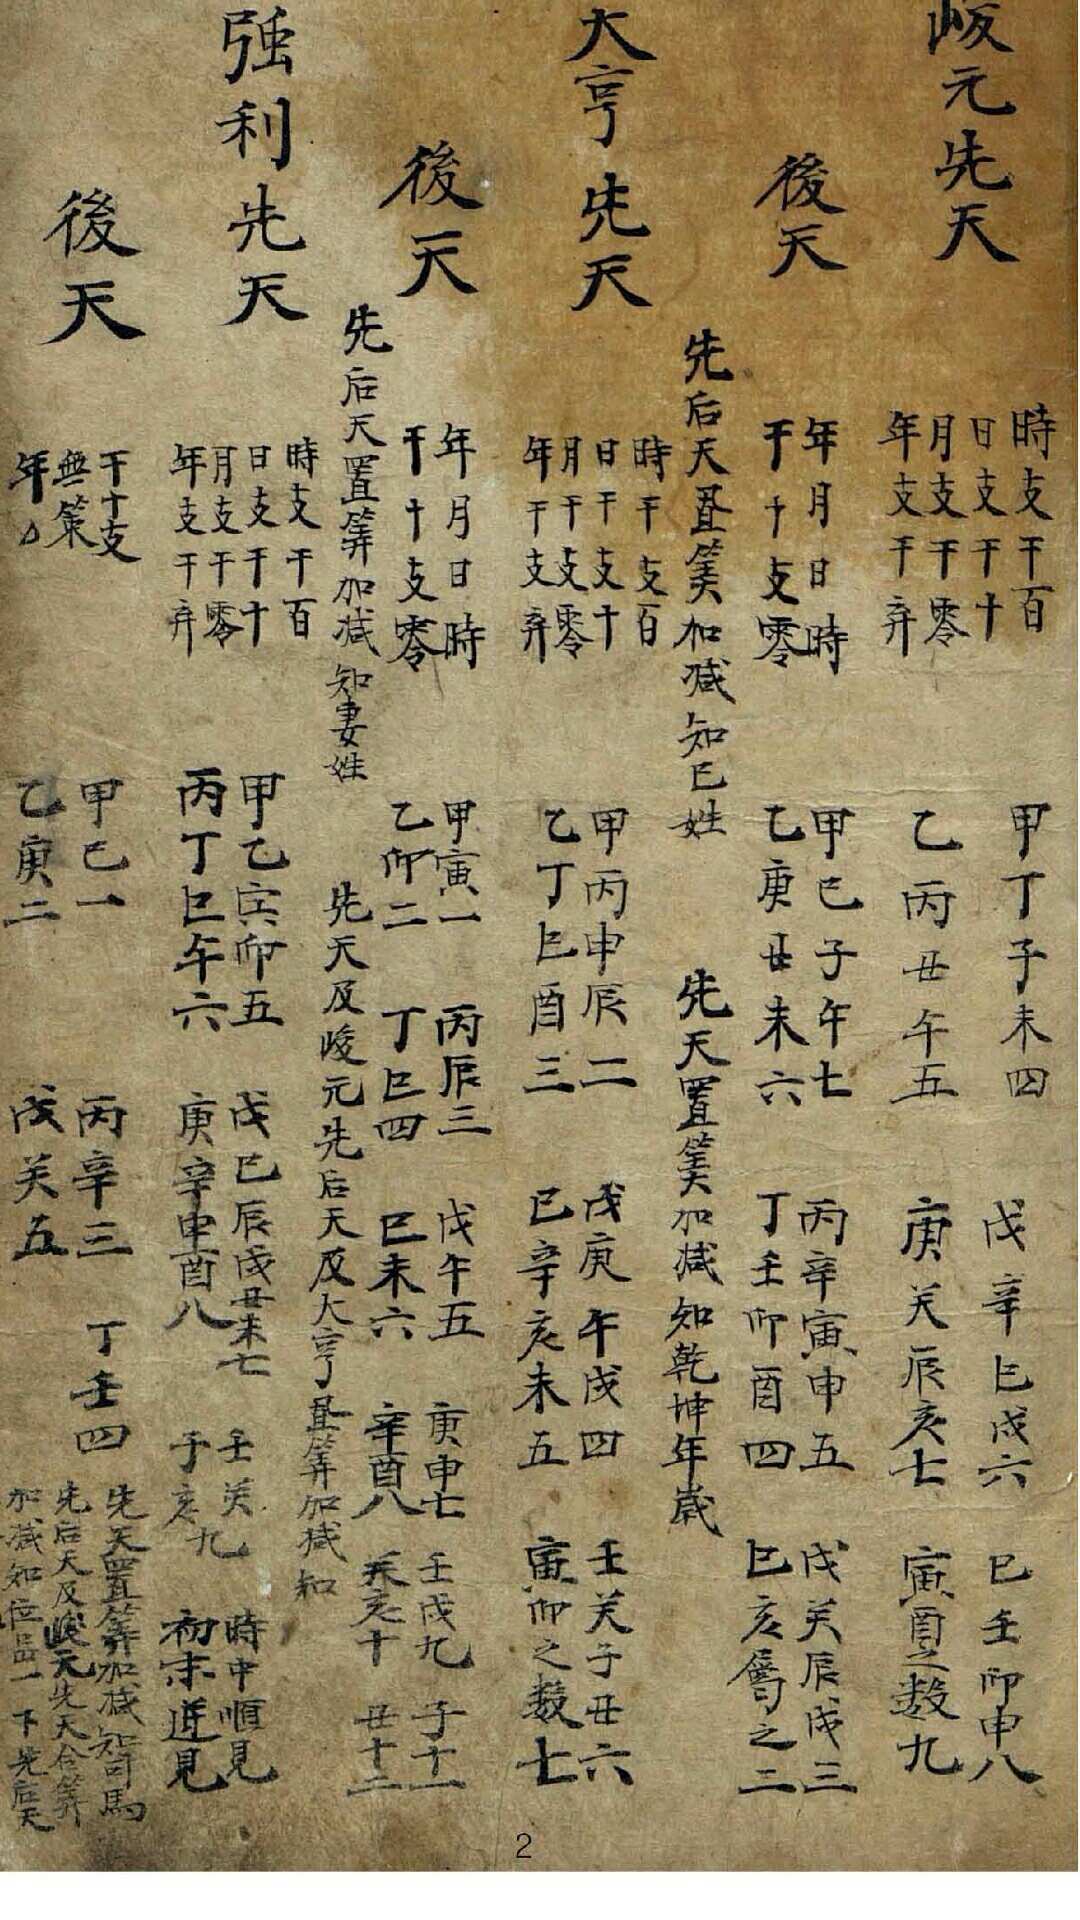 峻元先天
時支干百
日支干十
年月支干零
年支干弃
甲丁子未四
乙丙丑午五
戊辛巳戌六
庚关辰亥七
己壬卯申八
寅酉之数九
後天
年月日時
干十支零
甲己子午七
乙庚丑未六
丙辛寅申五
丁壬卯酉四
戊关辰戌三
巳亥屬之二
先后天置筭加减知己姓
先天置筭加减知乾坤年歲
大亨先天
時干支百
日干支十
月干支零
年干支弃
甲丙申辰二
乙丁巳酉三
戊庚午戌四
己辛亥未五
壬关子丑六
寅卯之数七
後天
年月日時
干十支零
甲寅一
乙卯二
丙辰三
丁巳四
戊午五
己未六
庚申七
辛酉八
壬戌九
癸亥十
子十一
丑十二
先后天置筭加减知妻姓
先天及峻元先后天及大亨置筭加减知
強利先天
時支干百
日支干十
月支干零
年支干弃
甲乙寅卯五
丙丁巳午六
戊己辰戌丑未七
庚辛申酉八
壬关
子亥九
時中順見
初末逆見
後天
干十支
無策
年
甲己一
乙庚二
丙辛三
丁壬四
戊关五
先天置筭加减知司馬
先后天及峻元先天合筭
加减知位品一下先后天
2